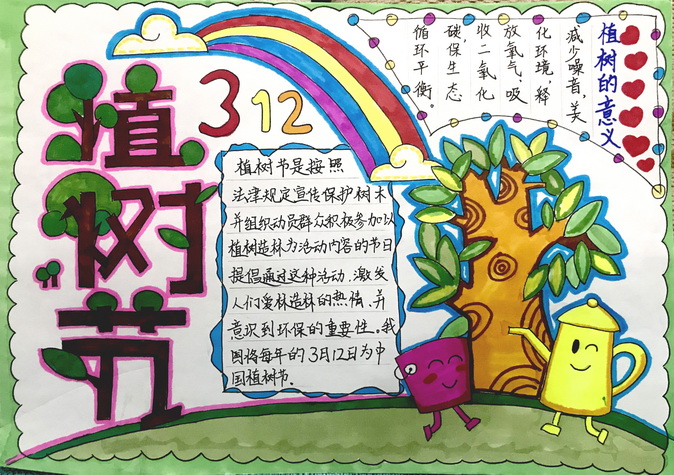 植树节
312
植树节是按照
法律规定宣传保护树木
并组织动员群众积极参加以
植树造林为活动内容的节日
提倡通过这种活动,激发
人们爱林造林的热情、并
意识到环保的重要性。我
国将每年的3月12日为中
国植树节.
植树的意义
减少噪音,美
化环境,释
放氧气;吸
收二氧化
碳,保生态
循环平衡。